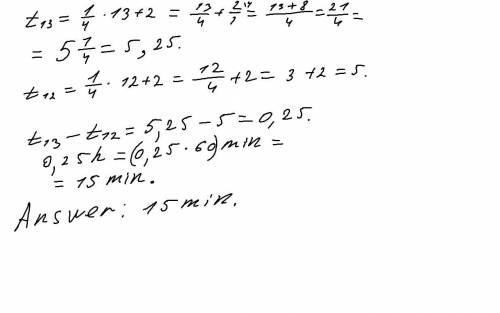 t₁₃ = 1/4 · 13 + 2 = 13/4 + 2/1 ⁽⁴ = (13 + 8)/4 = 21/4 =
= 5 1/4 = 5,25.
t₁₂ = 1/4 · 12 + 2 = 12/4 + 2 = 3 + 2 = 5.
t₁₃ - t₁₂ = 5,25 - 5 = 0,25.
0,25h = (0,25 · 60) min =
= 15 min.
Answer: 15 min.